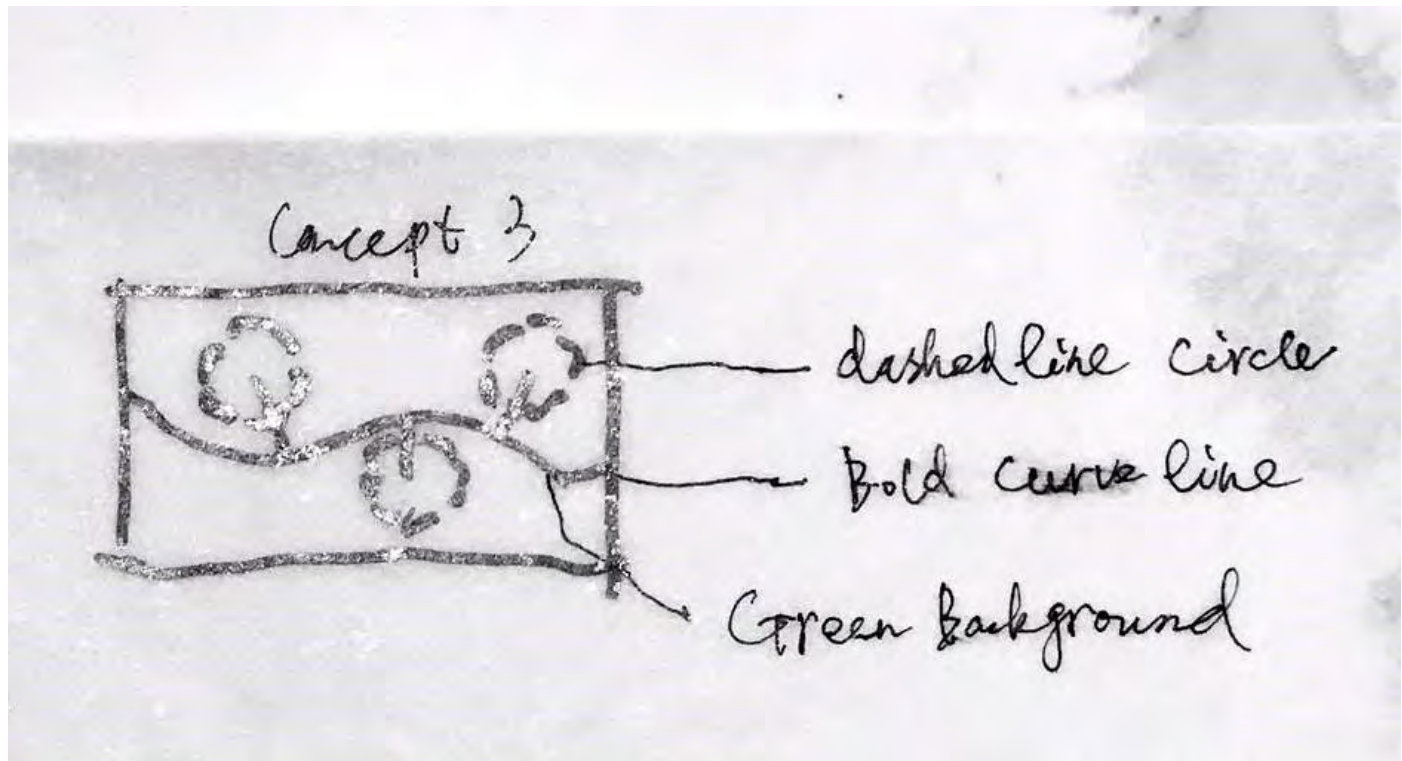 Concept 3
dashed line circle
Bold curve line
Green Background